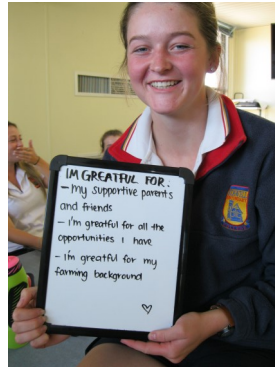 IM GREATFUL FOR.
- My supportive parents
and friends
- I'm greatful for all the
opportunities I have
- I'm greatful for my
farming background